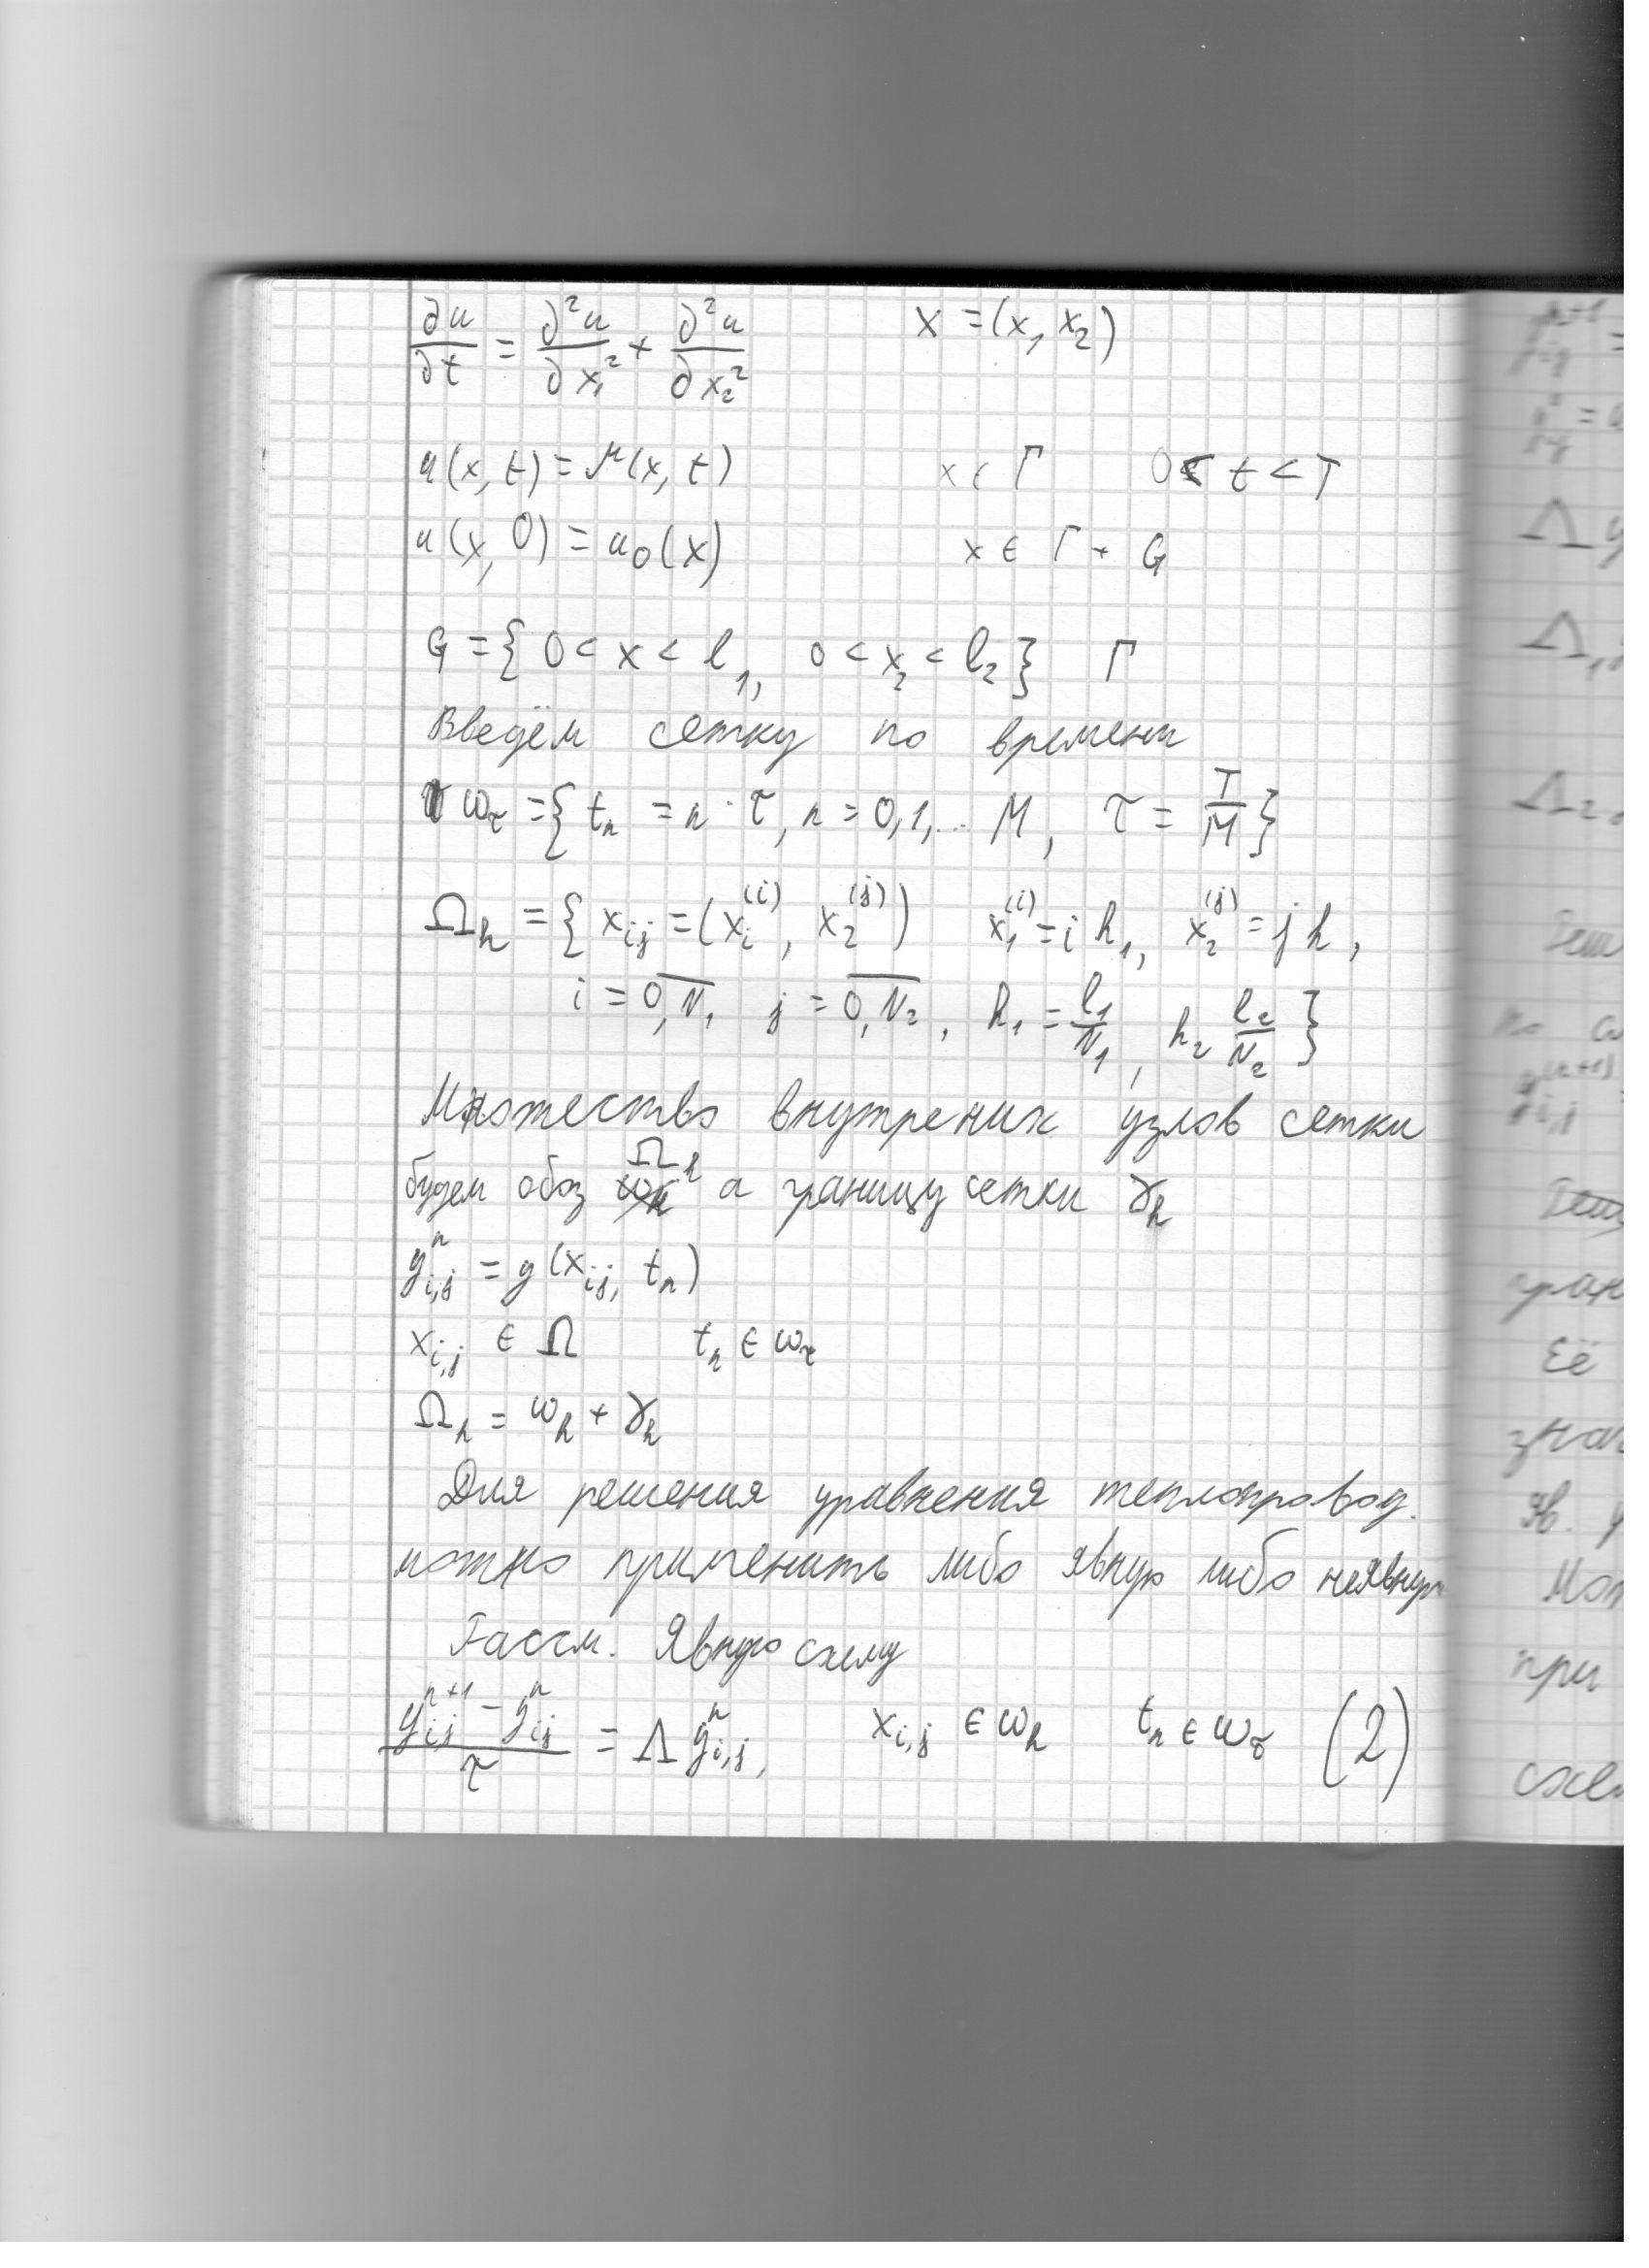 ∂u/∂t = ∂²u/∂x₁² + ∂²u/∂x₂² x = (x₁ x₂)
u(x, t) = μ(x, t) x ∈ Γ 0 < t < T
u(x, 0) = u₀(x) x ∈ Γ + G
G = { 0 < x < l₁, 0 < x₂ < l₂ } Γ
Введём сетку по времени
ω_τ = { t_n = n · τ, n = 0, 1, ... M, τ = T/M }
Ω_h = { x_ij = (x_i^(i), x_2^(j)) x_1^(i) = i h₁, x_2^(j) = j h,
i = 0, N₁ j = 0, N₂, h₁ = l₁/N₁, h₂ l₂/N₂ }
Множество внутрених узлов сетки
будем обоз Ω_h а границу сетки γ_h
y_{i,j}^n = y(x_ij, t_n)
x_{i,j} ∈ Ω t_n ∈ ω_τ
Ω_h = ω_h + γ_h
Для решения уравнения теплопровод.
можно применить либо явную либо неявную
Рассм. Явную схему
(y_{i,j}^{n+1} - y_{ij}^n)/τ = Λ y_{i,j}^n, x_{i,j} ∈ ω_h t_n ∈ ω_τ (2)